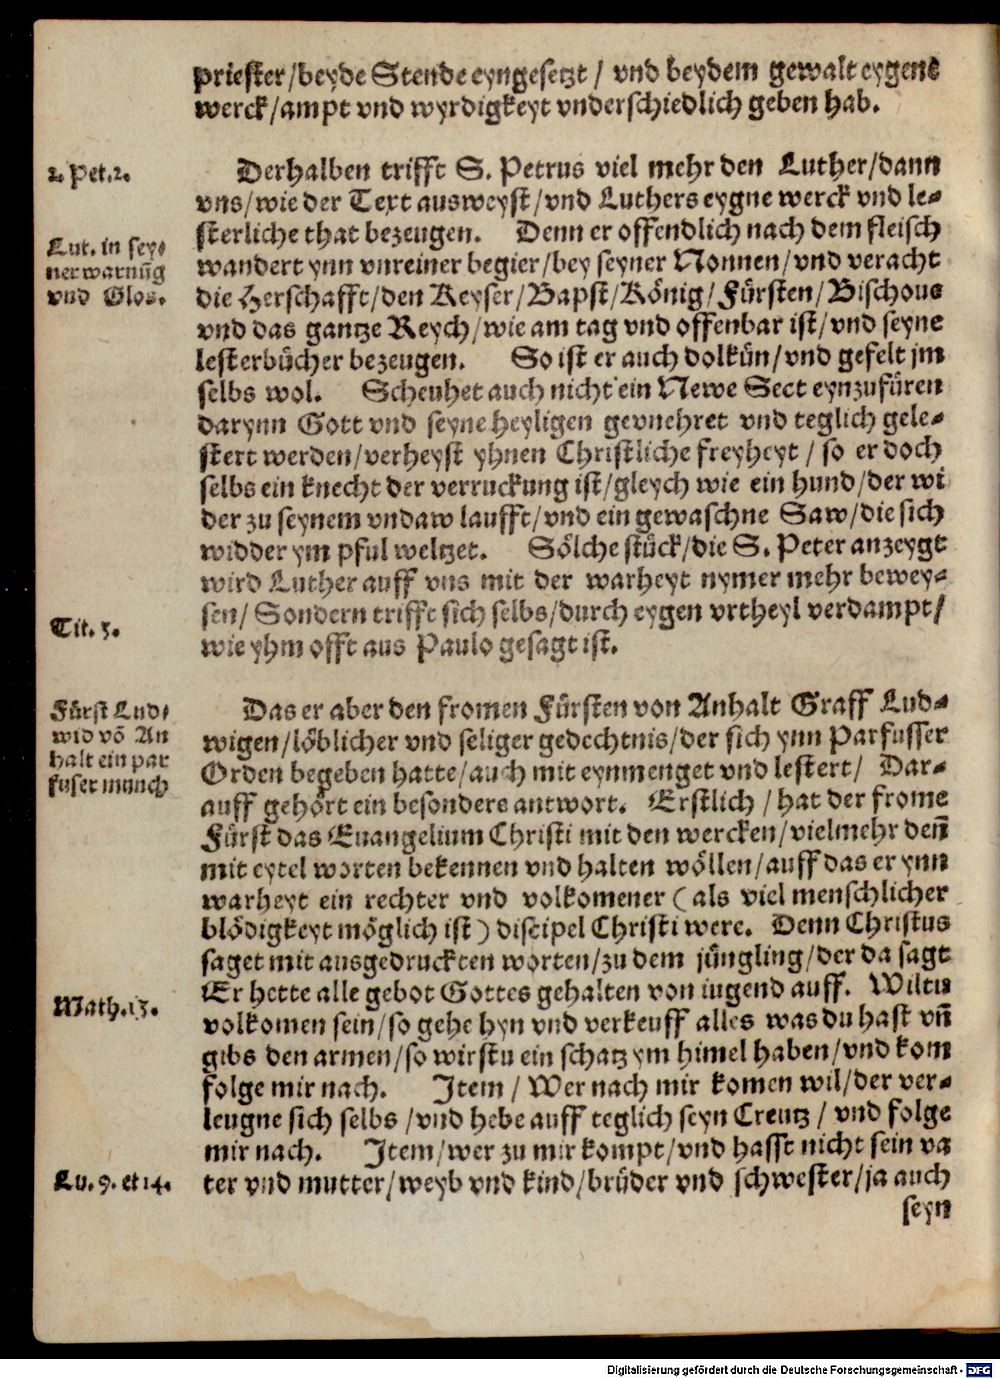 priester/beyde Stende eyngesetzt / vnd beydem gewalt eygene
werck/ampt vnd wyrdigkeyt vnderschiedlich geben hab.
2. Pet.2.
Derhalben trifft S. Petrus viel mehr den Luther/dann
vns/wie der Text ausweyst/vnd Luthers eygne werck vnd le-
Lut. in sey-
ner warnūg
vnd Glos.
sterliche that bezeugen. Denn er offendlich nach dem fleisch
wandert ynn vnreiner begier/bey seyner Nonnen/vnd veracht
die Herschafft/den Keyser/Bapst/König/Fürsten/Bischoue
vnd das gantze Reych/wie am tag vnd offenbar ist/vnd seyne
lesterbücher bezeugen. So ist er auch dolkün/vnd gefelt jm
selbs wol. Scheuhet auch nicht ein Newe Sect eynzufüren
darynn Gott vnd seyne heyligen gevnehret vnd teglich gele-
stert werden/verheyst yhnen Christliche freyheyt / so er doch
selbs ein knecht der verruckung ist/gleych wie ein hund/der wi
der zu seynem vndaw laufft/vnd ein gewaschne Saw/die sich
widder ym pful weltzet. Sölche stück/die S. Peter anzeygt
wird Luther auff vns mit der warheyt nymer mehr bewey-
sen/ Sondern trifft sich selbs/durch eygen vrtheyl verdampt/
Tit. 3.
wie yhm offt aus Paulo gesagt ist.
Fürst Lud-
wid vō An
halt ein par
fuser munch
Das er aber den fromen Fürsten von Anhalt Graff Lud-
wigen/löblicher vnd seliger gedechtnis/der sich ynn Parfusser
Orden begeben hatte/auch mit eynmenget vnd lestert/ Dar-
auff gehört ein besondere antwort. Erstlich / hat der frome
Fürst das Euangelium Christi mit den wercken/vielmehr deñ
mit eytel worten bekennen vnd halten wöllen/auff das er ynn
warheyt ein rechter vnd volkomener (als viel menschlicher
blödigkeyt möglich ist) discipel Christi were. Denn Christus
saget mit ausgedruckten worten/zu dem jüngling/der da sagt
Math.13.
Er hette alle gebot Gottes gehalten von iugend auff. Wiltu
volkomen sein/so gehe hyn vnd verkeuff alles was du hast vñ
gibs den armen/so wirstu ein schatz ym himel haben/vnd kom
folge mir nach. Item / Wer nach mir komen wil/der ver-
leugne sich selbs /vnd hebe auff teglich seyn Creutz / vnd folge
mir nach. Item/wer zu mir kompt/vnd hasst nicht sein va
Lu. 9. et 14.
ter vnd mutter/weyb vnd kind/brüder vnd schwester/ja auch
seyn
Digitalisierung gefördert durch die Deutsche Forschungsgemeinschaft - DFG